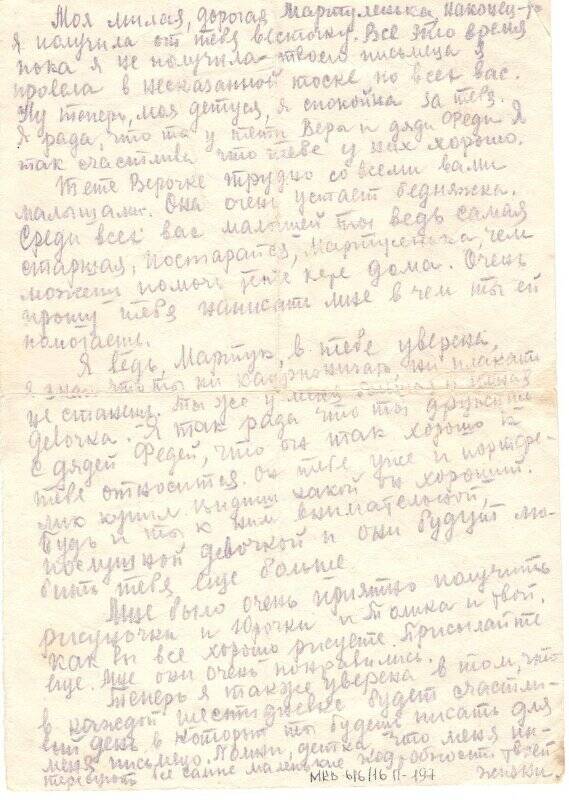 Моя милая, дорогая Мартуленька. Наконец-то
я получила от тебя весточку. Все это время
пока я не получила твоего письмеца я
провела в несказанной тоске по всех вас.
Ну теперь, моя детуся, я спокойна за тебя.
Я рада, что ты у тети Веры и дяди Феди я
так счастлива что тебе у них хорошо.
Тете Верочке трудно со всеми вами
малышами. Она очень устает бедняжка.
Среди всех вас малышей ты ведь самая
старшая, постарайся, Мартуленька, чем
можешь помочь тете Вере дома. Очень
прошу тебя написать мне в чем ты ей
помогаешь.
Я ведь, Мартук, в тебе уверена,
я знаю что ты ни капризничать ни плакать
не станешь. Ты же у меня большая и умная
девочка. Я так рада что ты дружишь
с дядей Федей, что он так хорошо к
тебе относится. Он тебе уже и портфе-
лик купил видишь какой он хороший.
Будь и ты к ним внимательной,
послушной девочкой и они будут лю-
бить тебя еще больше
Мне было очень приятно получить
рисуночки и Юрочки и Толика и твой.
как вы все хорошо рисуете. Присылайте
еще. Мне они очень понравились.
Теперь я также уверена в том, что
в каждой шестидневке будет счастли-
вый день в который ты будешь писать для
меня письмецо. Помни, детка что меня ин-
тересуют все самые маленькие подробности твоей
жизни.
МКВ 6/6/16 П-197